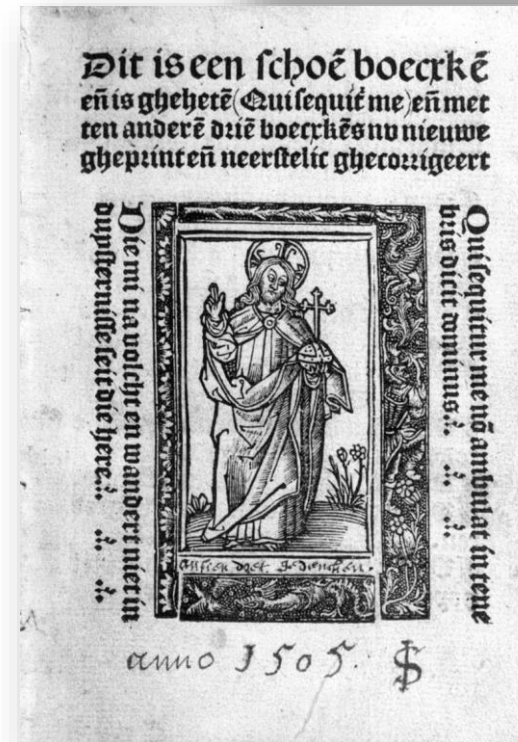 Dit is een ſchoē boecxkē
eñ is ghehetē (Qui ſequit᷑ me) eñ met
ten anderē driē boecxkēs nv nieuwe
gheprint eñ neerſtelic ghecorrigeert
Die mi na volcht en wandert niet in
duyſterniſſe ſeit die here.
Qui ſequitur me nō ambulat in tene
bris dicit dominus
anno 1505.